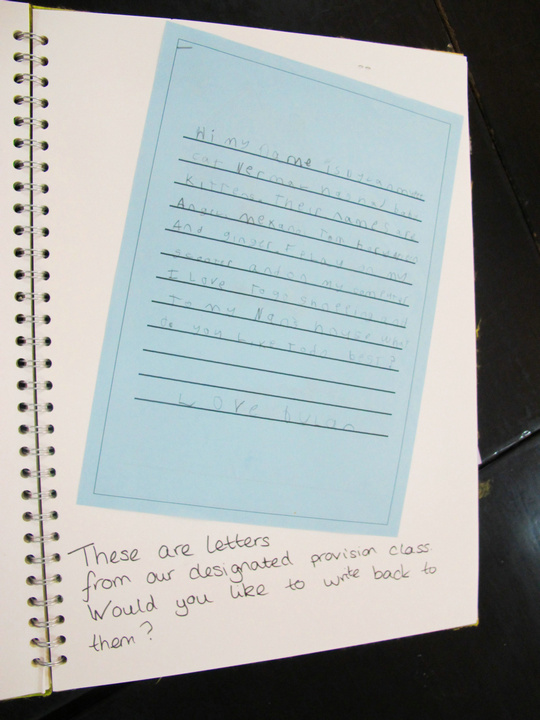 Hi my name is
cat has had
Their names are
And ginger. I play on my
scooter and on my computer
I Love To go shopping and
To my Nans house what
do you Like Todo best?
Love
These are letters
from our designated provision class.
Would you like to write back to
them?